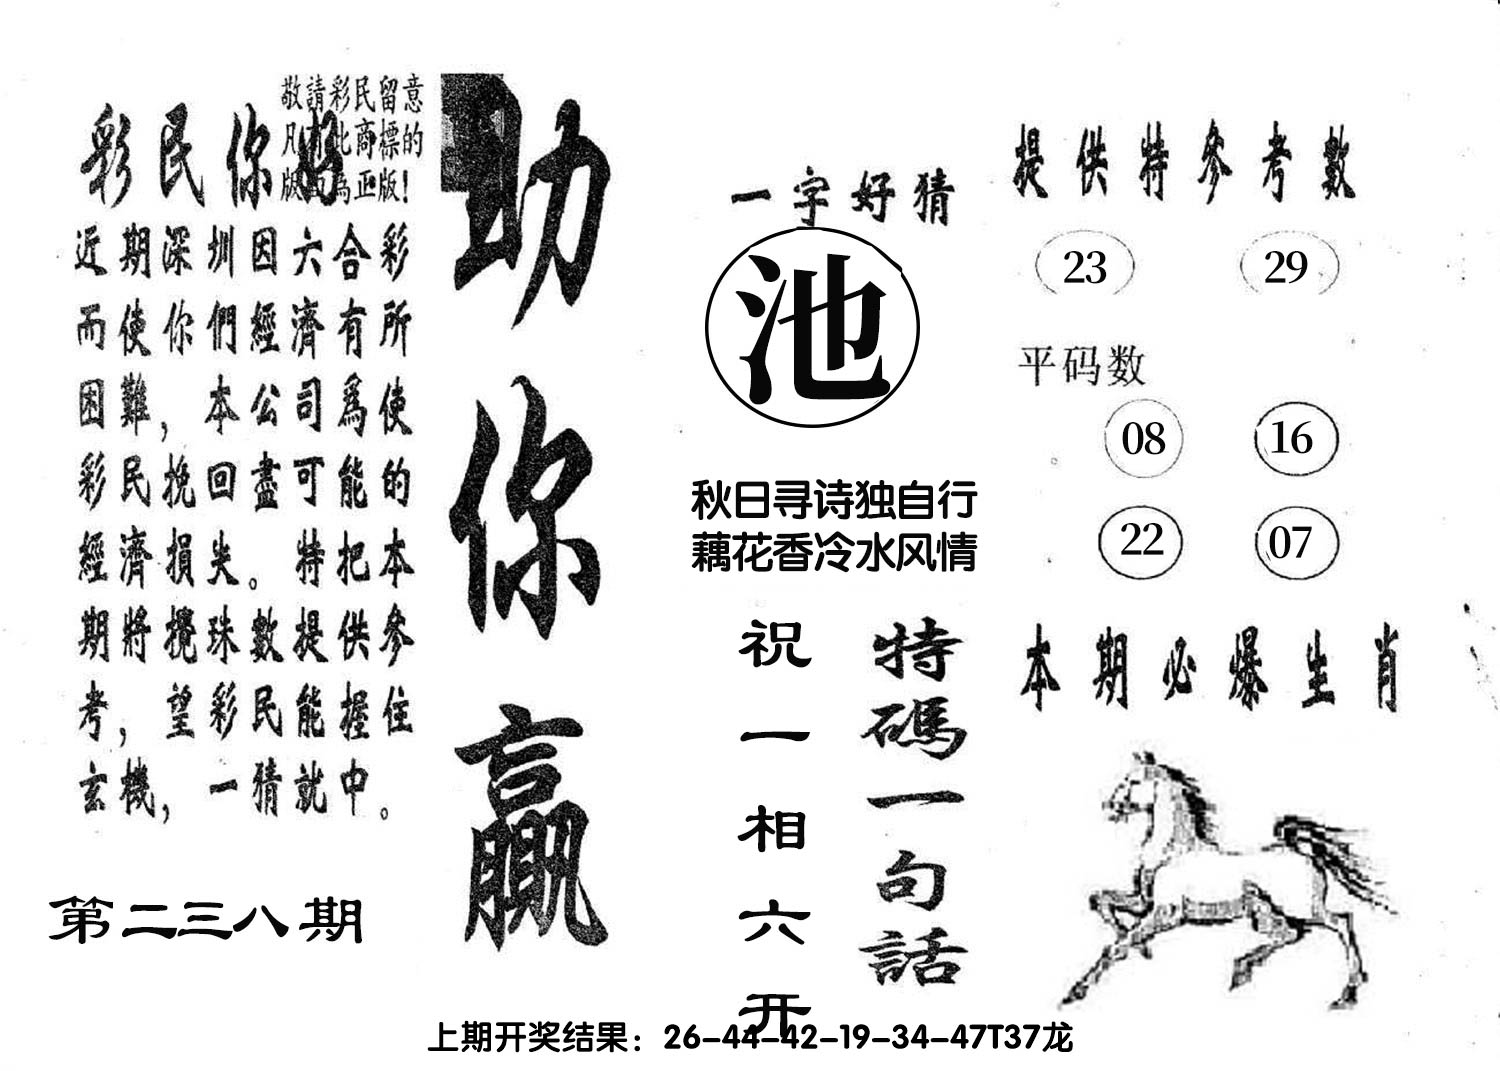 敬請彩民留意
凡有此商標的
版面為正版！
彩民你好
近期深圳因六合彩
而使你們經濟有所
困難，本公司爲使
彩民挽回盡可能的
經濟損失。特把本
期將攪珠數提供參
考，望彩民能握住
玄機，一猜就中。
第二三八期
助你贏
一字好猜
池
秋日寻诗独自行
藕花香冷水风情
特碼一句話
祝一相六开
提供特參考數
23 29
平码数
08 16
22 07
本期必爆生肖
上期开奖结果：26-44-42-19-34-47T37龙